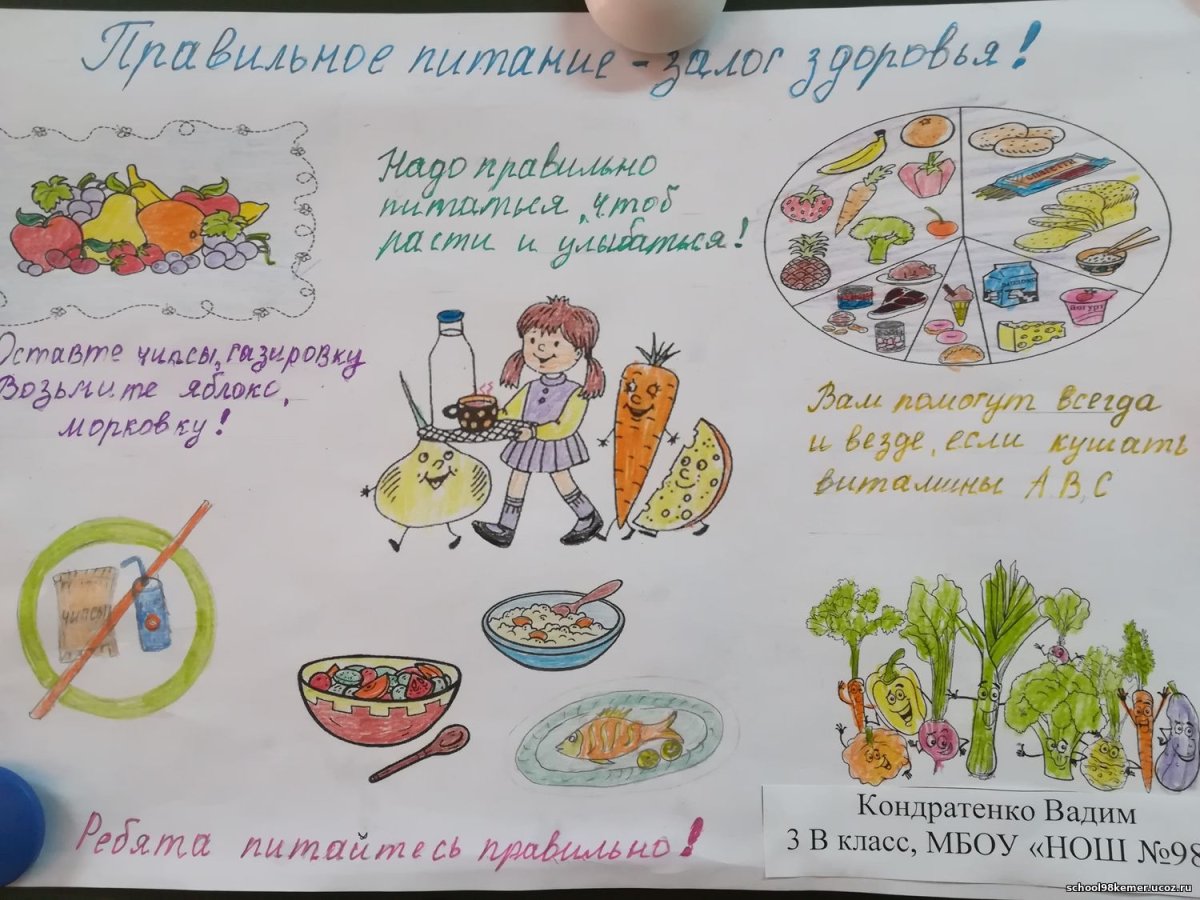 Правильное питание - залог здоровья!
Надо правильно
питаться, чтоб
расти и улыбаться!
Оставте чипсы, газировку
Возьмите яблоко,
морковку!
Вам помогут всегда
и везде, если кушать
витамины А, В, С
йогурт
чипсы
Ребята питайтесь правильно!
Кондратенко Вадим
3 В класс, МБОУ «НОШ №98
school98kemer.ucoz.ru